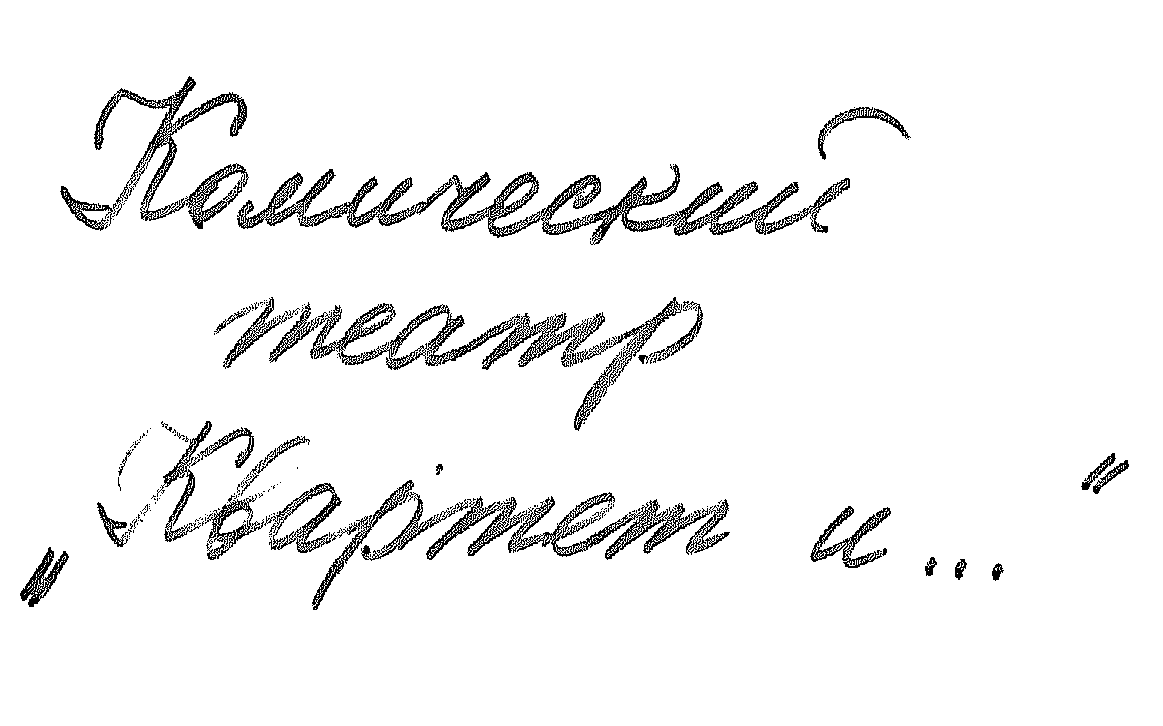 Комический
театр
„Квартет и..."